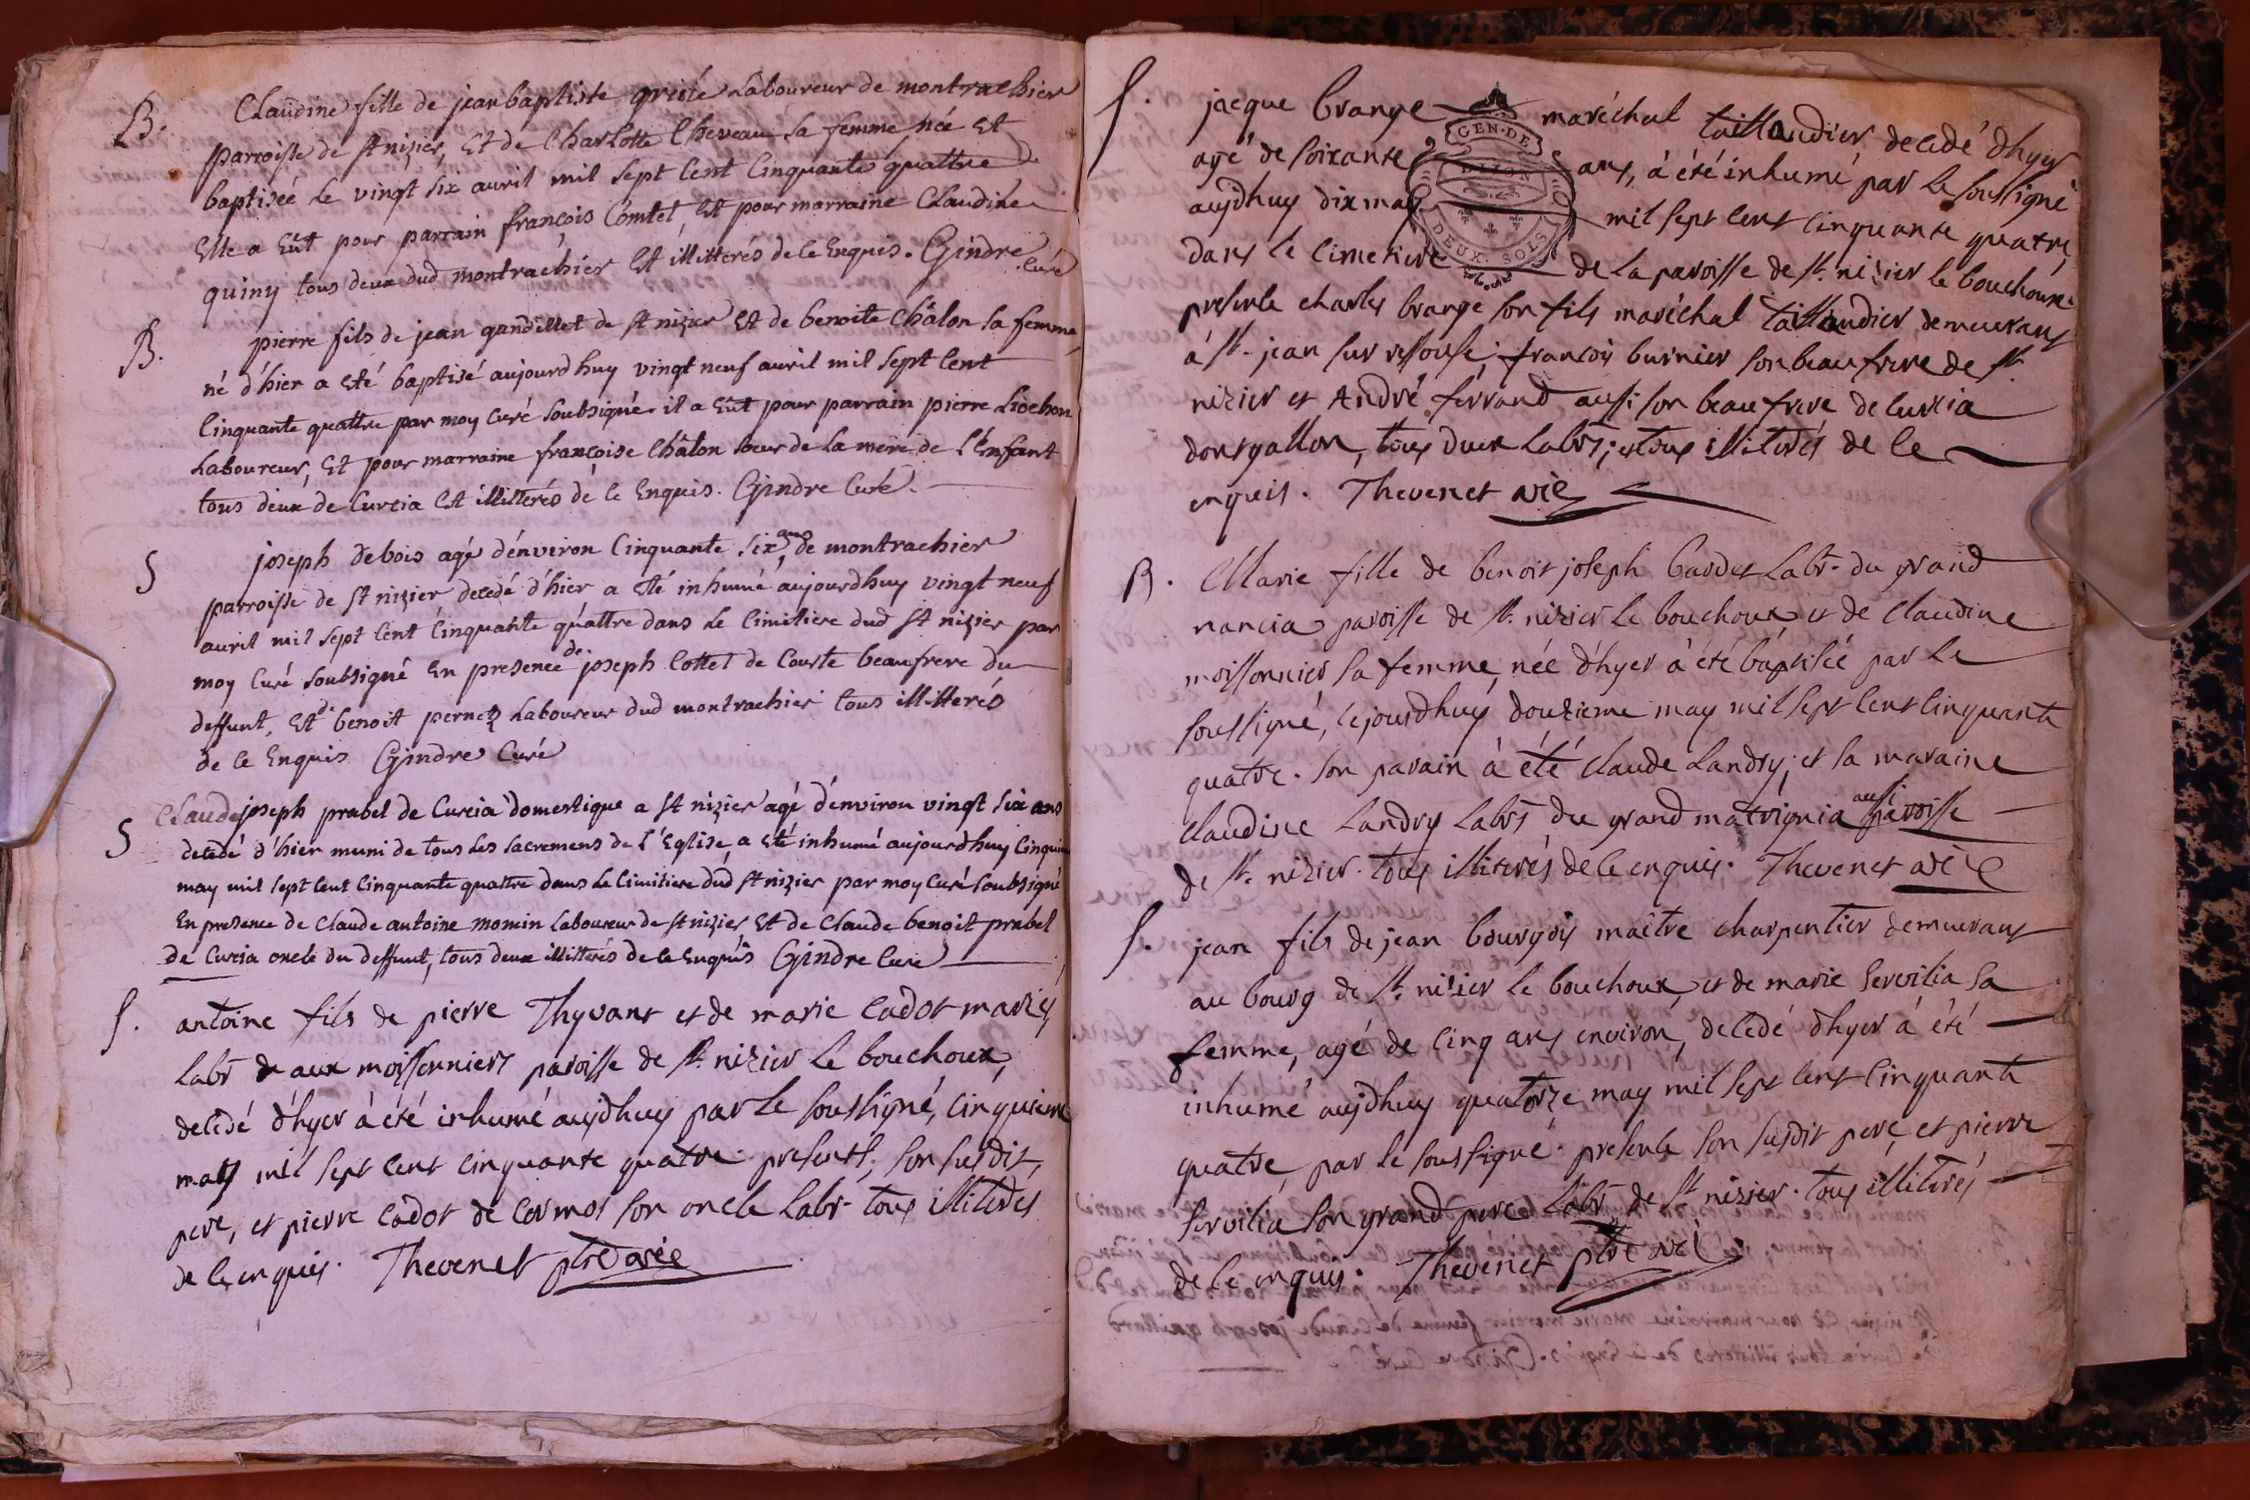 B. Claudine fille de jean baptiste gruité Laboureur de montrachier
parroisse de st nizier, Et de Charlotte Cheveau sa femme née Et
baptisée le vingt six avril mil sept Cent Cinquante quattre
Elle a Eût pour parrain françois Comtet Et pour marraine Claudine
quiny tous deux dud montrachier Et illitterés de le Enquis. Gindre Curé
B. pierre fils de jean gandillet de st nizier Et de benoite Châlon sa femme
né d'hier a Eté baptisé aujourdhuy vingt neuf avril mil sept Cent
Cinquante quattre par moy Curé soubsigné. il a Eût pour parrain pierre Liochon
Laboureur, Et pour marraine françoise Châlon soeur de la mere de l'Enfant
tous deux de Curcia Et illitterés de ce Enquis. Gindre Curé.
S joseph debois agé d'environ Cinquante six ans de montrachier
parroisse de st nizier decedé d'hier a Eté inhumé aujourdhuy vingt neuf
avril mil sept Cent Cinquante quattre dans le Cimitiere dud st nizier par
moy Curé soubsigné En presence de joseph Cottet de Couste beaufrere du
deffunt, Et de benoit pernez Laboureur dud montrachier tous illitterés
de ce Enquis Gindre Curé
S Claude joseph prabel de Curcia domestique a st nizier agé d'environ vingt six ans
decedé d'hier muni de tous les sacremens de l'Eglise, a Eté inhumé aujourdhuy Cinquie
may mil sept cent Cinquante quattre dans le Cimitiere dud st nizier par moy Curé soubsigné
En presence de Claude antoine momin Laboureur de st nizier Et de Claude benoit prabel
de Curcia oncle du deffunt, tous deux illitterés de ce Enquis Gindre Curé
S. antoine fils de pierre Thyvant et de marie Cadot mariés
Labrs de aux moissonniers paroisse de st. nizier le bouchoux,
decédé d'hyer à été inhumé aujdhuy par le soussigné, cinquieme
may mil sept cent cinquante quatre. presents, son susdit
pere, et pierre Cadot de Cormos son oncle Labr. tous illiterés
de ce enquis. Thevenet ptre vic
S. jacque brange maréchal taillandier decedé d'hyer
agé de soixante ans, à été inhumé par le soussigné
aujdhuy dix may mil sept cent cinquante quatre
dans le cimetiere de la paroisse de st. nizier le bouchoux.
presents charles brange son fils maréchal taillandier demeurant
à st. jean sur ressouse; françois burnier son beaufrere de st
nizier et André ferrand aussi son beaufrere de curcia
dongallon, tous deux Labrs; et tous illiterés de ce
enquis. Thevenet vic
GEN. DE
DIJON
DEUX. SOLS
B. Marie fille de benoit joseph bardet Labr. du grand
nancia paroisse de st. nizier le bouchoux et de claudine
moissonnier sa femme, née d'hyer à été baptisée par le
soussigné, cejourdhuy douzieme may mil sept cent cinquante
quatre. son parain à été claude Landry; et sa maraine
claudine Landry Labrs du grand matrignia aussi paroisse
de st. nizier. tous illiterés de ce enquis. Thevenet vic
S. jean fils de jean bourgois maître charpentier demeurant
au bourg de st. nizier le bouchoux, et de marie servilia sa
femme, agé de cinq ans environ, decedé d'hyer à été
inhumé aujdhuy quatorze may mil sept cent cinquante
quatre, par le soussigné. presents son susdit pere et pierre
servilia son grand pere Labr de st nizier. tous illiterés
de ce enquis. Thevenet ptre vic